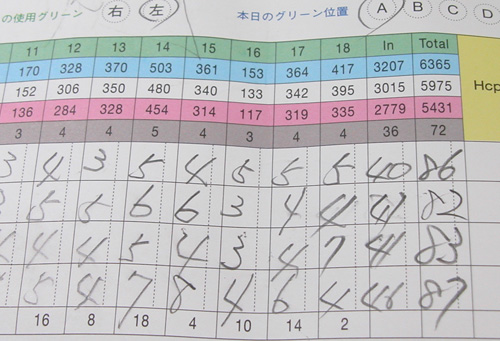 の使用グリーン 右 左 本日のグリーン位置 A B C D
11 12 13 14 15 16 17 18 In Total
170 328 370 503 361 153 364 417 3207 6365
152 306 350 480 340 133 342 395 3015 5975 Hcp
136 284 328 454 314 117 319 335 2779 5431
3 4 4 5 4 3 4 4 36 72
3 4 3 5 4 5 5 5 40 86
5 5 6 6 3 4 4 41 82
4 4 5 4 3 4 7 41 83
5 4 7 8 4 6 4 46 87
16 8 18 4 10 14 2